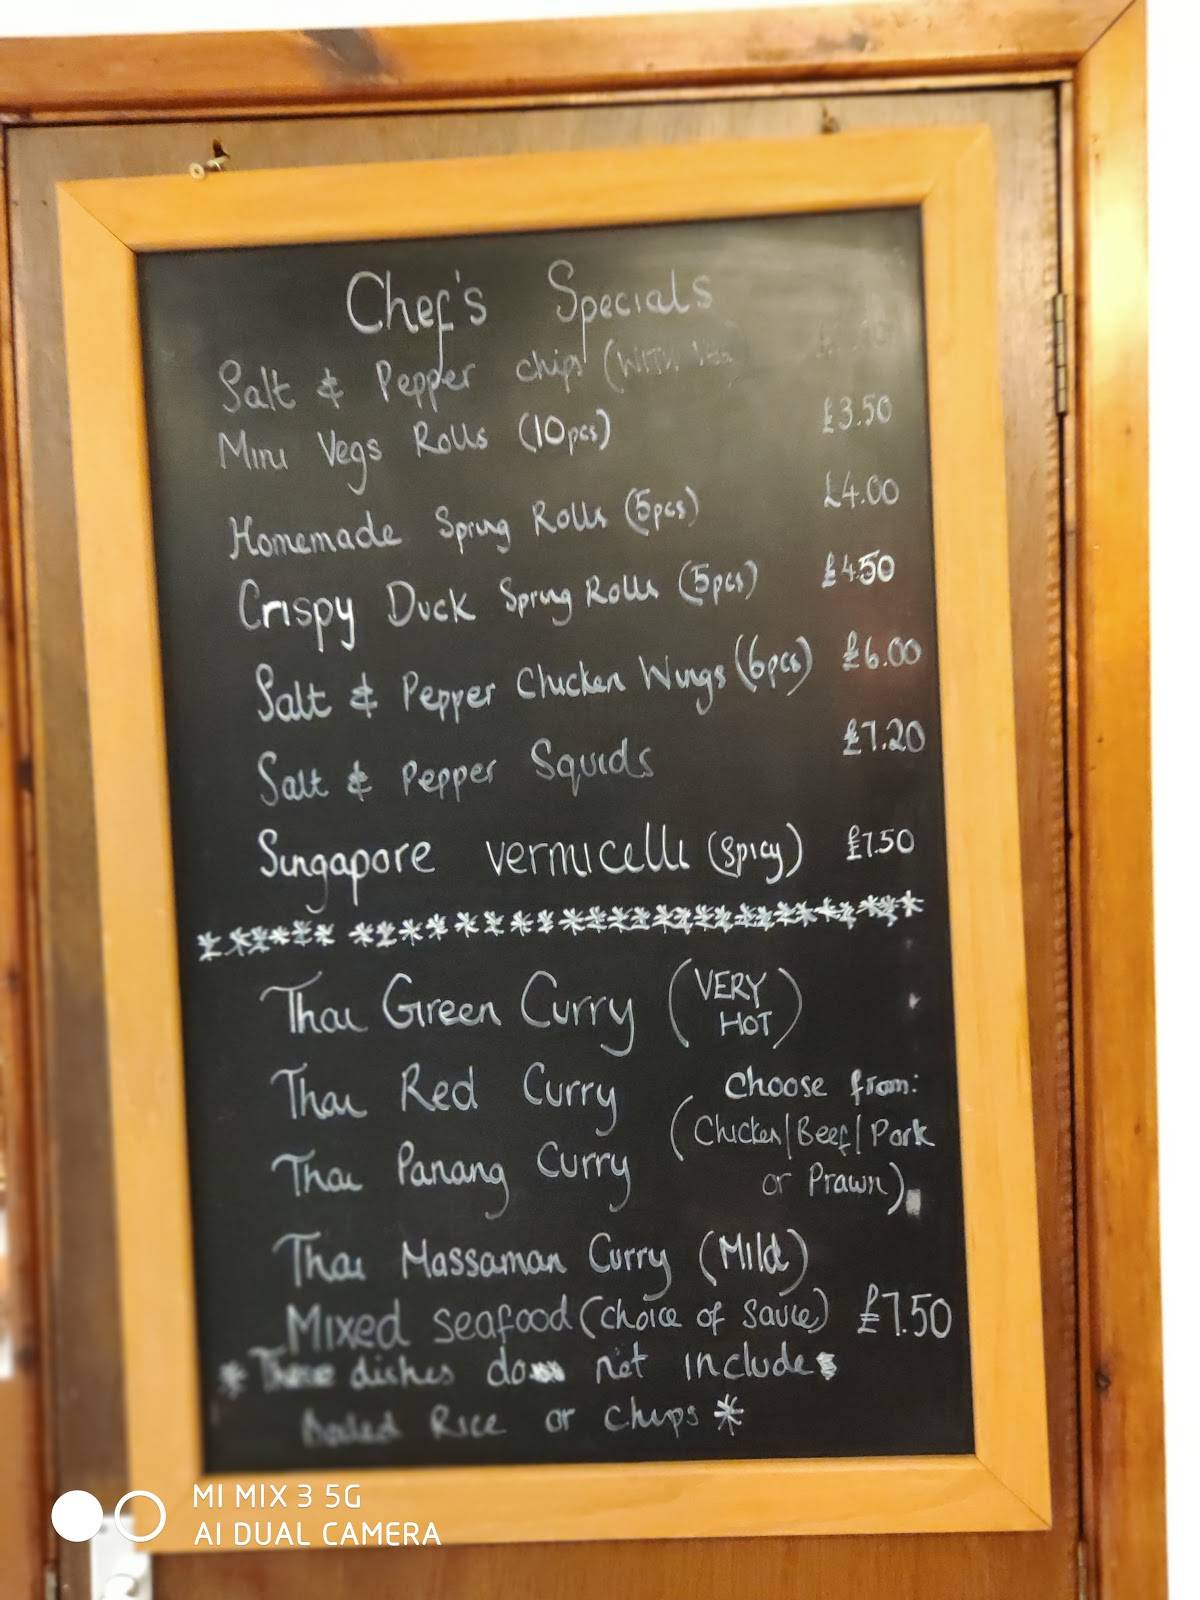 Chef's Specials
Salt & Pepper chips (WITH
Mini Vegs Rolls (10pcs) £3.50
Homemade Spring Rolls (5pcs) £4.00
Crispy Duck Spring Rolls (5pcs) £4.50
Salt & Pepper Chicken Wings (6pcs) £6.00
Salt & Pepper Squids £7.20
Singapore vermicelli (spicy) £7.50
Thai Green Curry (VERY HOT)
Thai Red Curry
Choose from:
(Chicken/Beef/Pork
or Prawn)
Thai Panang Curry
Thai Massaman Curry (Mild)
Mixed seafood (choice of sauce) £7.50
*These dishes do not include
Boiled Rice or chips *
MI MIX 3 5G
AI DUAL CAMERA